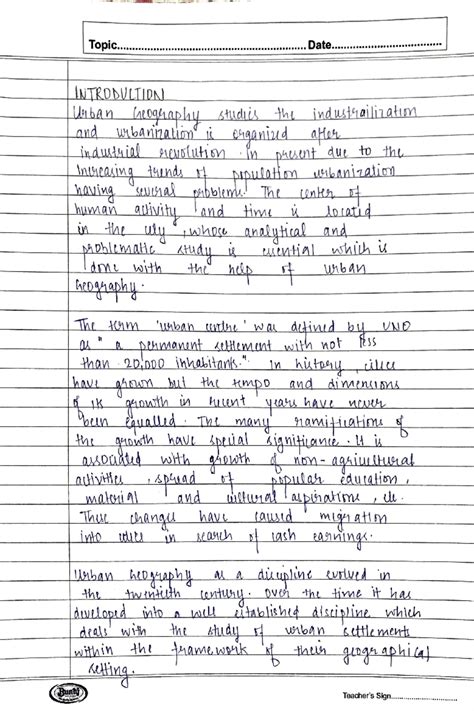 Topic.......................................................... Date..................................
INTRODUCTION
Urban Geography studies the industrailization
and urbanization is organized after
industrial revolution. In present due to the
Increasing trends of population urbanization
having several problems. The center of
human activity and time is located
in the city, whose analytical and
problematic study is essential which is
done with the help of urban
Geography.
The term 'urban centre' was defined by UNO
as " a permanent settlement with not less
than 20,000 inhabitants." In history, cities
have grown but the tempo and dimensions
of its growth in recent years have never
been equalled. The many ramifications of
the growth have special significance. It is
associated with growth of non-agricultural
activities, spread of popular education,
material and cultural aspirations, etc.
These changes have caused migration
into cities in search of cash earnings.
Urban Geography as a discipline evolved in
the twentieth century. Over the time it has
developed into a well established discipline which
deals with the study of urban settlements
within the framework of their geographical
setting.
Teacher's Sign..........................